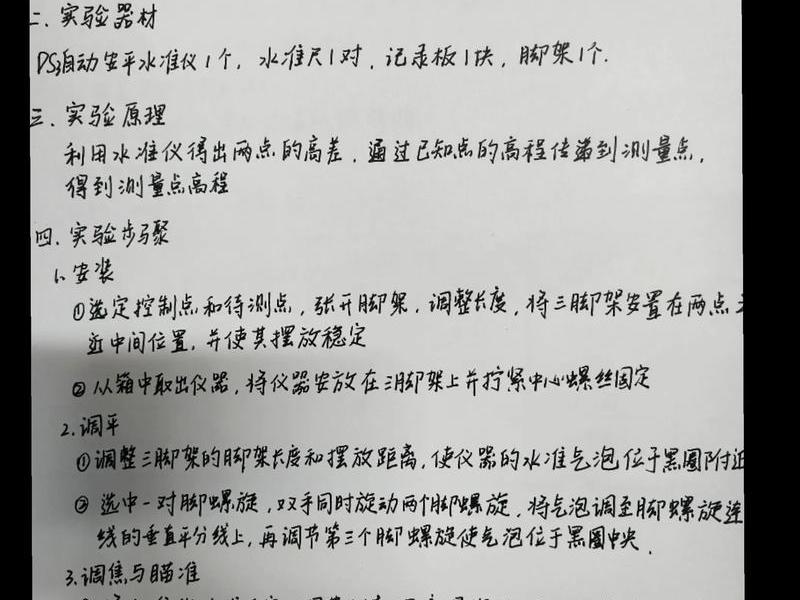 二、实验器材
DS3自动安平水准仪1个，水准尺1对，记录板1块，脚架1个.
三、实验原理
利用水准仪得出两点的高差，通过已知点的高程传递到测量点，
得到测量点高程
四、实验步骤
1.安装
①选定控制点和待测点，张开脚架，调整长度，将三脚架安置在两点
近中间位置，并使其摆放稳定
②从箱中取出仪器，将仪器安放在三脚架上并拧紧中心螺丝固定
2.调平
①调整三脚架的脚架长度和摆放距离，使仪器的水准气泡位于黑圈附近
②选中一对脚螺旋，双手同时旋动两个脚螺旋，将气泡调至脚螺旋连
线的垂直平分线上，再调节第三个脚螺旋使气泡位于黑圈中央.
3.调焦与瞄准